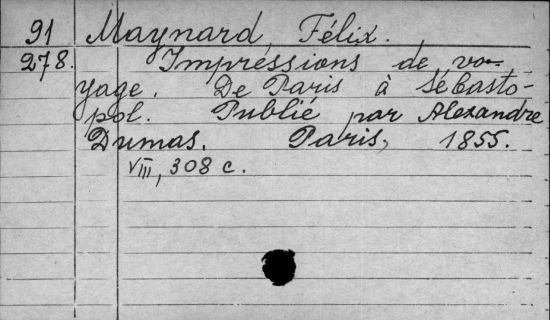 91 Maynard, Félix.
278. Impréssions de vo-
yage. De Paris à Sébasto-
pol. Publié par Alexandre
Dumas. Paris, 1855.
VIII, 308 c.